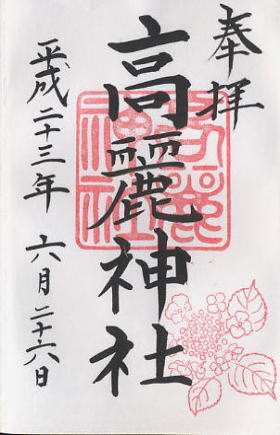 奉拝
高麗神社
高麗神社
平成二十三年 六月二十六日